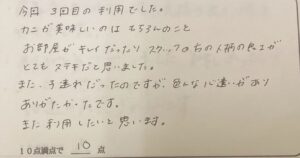 今回 3回目の利用でした。
カニが美味しいのはもちろんのこと
お部屋がキレイだったり スタッフの方の人柄の良さが
とてもステキだと思いました。
また、子連れだったのですが、色んな心遣いがあり
ありがたかったです。
また利用したいと思います。
10点満点で 10 点